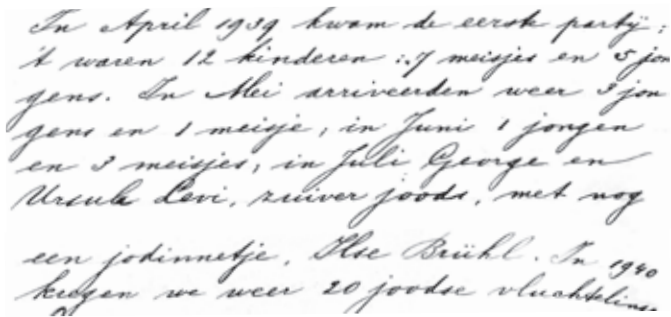 In April 1939 kwam de eerste partij:
't waren 12 kinderen: 7 meisjes en 5 jon
gens. In Mei arriveerden weer 3 jon
gens en 1 meisje, in Juni 1 jongen
en 3 meisjes, in Juli George en
Ursula Levi, zuiver joods, met nog
een jodinnetje, Ilse Brühl. In 1940
kregen we weer 20 joodse vluchteling